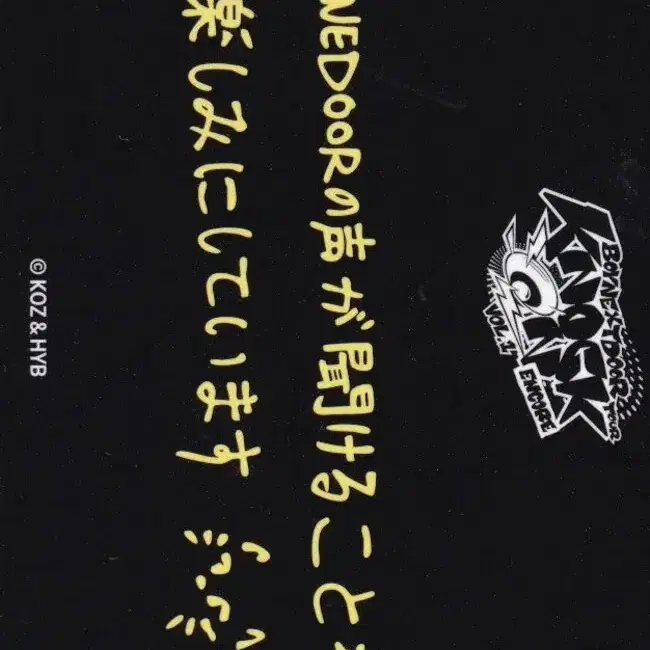 BOYNEXTDOOR TOUR
KNOCK ON
VOL.1
ENCORE
NEDOORの声が聞けること
楽しみにしています
© KOZ & HYB